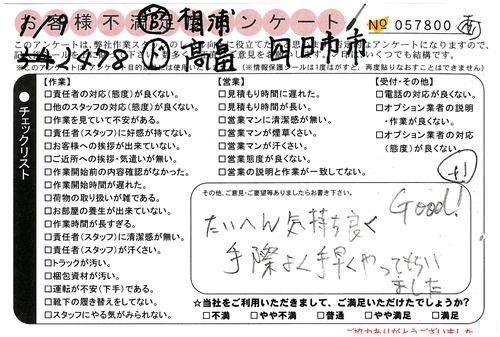 お客様不満足アンケート
№ 057800
1/9 B 相浦
2478 D 高畠 四日市市
このアンケートは、弊社作業スタッフの
※このアンケートは
(※情報保護シールは1度はがすと、再度貼りなおすことはできません
●チェックリスト
【作業】
□責任者の対応(態度)が良くない。
□他のスタッフの対応(態度)が良くない。
□作業を見ていて不安がある。
□責任者(スタッフ)に好感が持てない。
□お客様への挨拶が出来ていない。
□ご近所への挨拶・気遣いが無い。
□作業開始前の内容確認がなかった。
□作業開始時間が遅れた。
□荷物の取り扱いが雑である。
□お部屋の養生が出来ていない。
□作業時間が長すぎる。
□責任者(スタッフ)に清潔感が無い。
□責任者(スタッフ)が汗くさい。
□トラックが汚い。
□梱包資材が汚い。
□運転が不安(下手)である。
□靴下の履き替えをしてない。
□スタッフにやる気がみられない。
【営業】
□見積もり時間に遅れた。
□見積もり時間が長い。
□営業マンに清潔感が無い。
□営業マンが煙草くさい。
□営業マンが汗くさい。
□営業態度が良くない。
□営業の説明と作業が一致してない。
【受付・その他】
□電話の対応が良くない。
□オプション業者の説明
・作業が良くない。
□オプション業者の対応
(態度)が良くない。
その他、ご意見・ご要望等ありましたらお書き下さい。
Good!
たいへん気持ち良く
手際よく手早くやってもらい
ました
☆当社をご利用いただきまして、ご満足いただけたでしょうか?
□不満 □やや不満 □普通 □やや満足 □満足
ご協力ありがとうございました